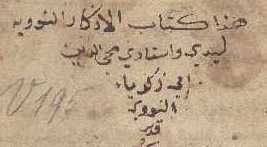 هذا كتاب الاذكار النوويه
لسيدي واستاذي محي الدين
ابي زكريا
النووي
V 195